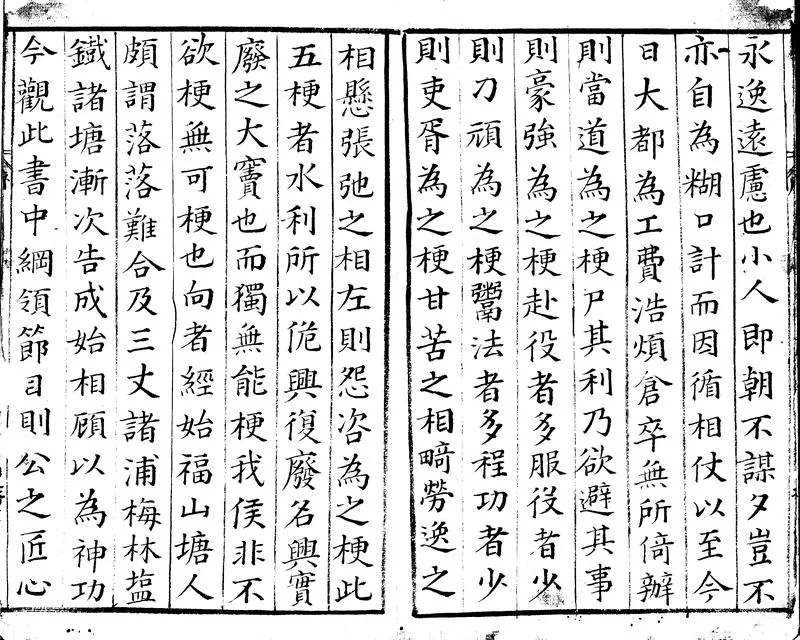 永逸遠慮也小人即朝不謀夕豈不
亦自為糊口計而因循相仗以至今
日大都為工費浩煩倉卒無所倚辦
則當道為之梗尸其利乃欲避其事
則豪強為之梗赴役者多服役者少
則刀頑為之梗鬻法者多程功者少
則吏胥為之梗甘苦之相畸勞逸之
相懸張弛之相左則怨咨為之梗此
五梗者水利所以佹興復廢名興實
廢之大竇也而獨無能梗我侯非不
欲梗無可梗也向者經始福山塘人
頗謂落落難合及三丈諸浦梅林塩
鐵諸塘漸次告成始相顧以為神功
今觀此書中綱領節目則公之匠心